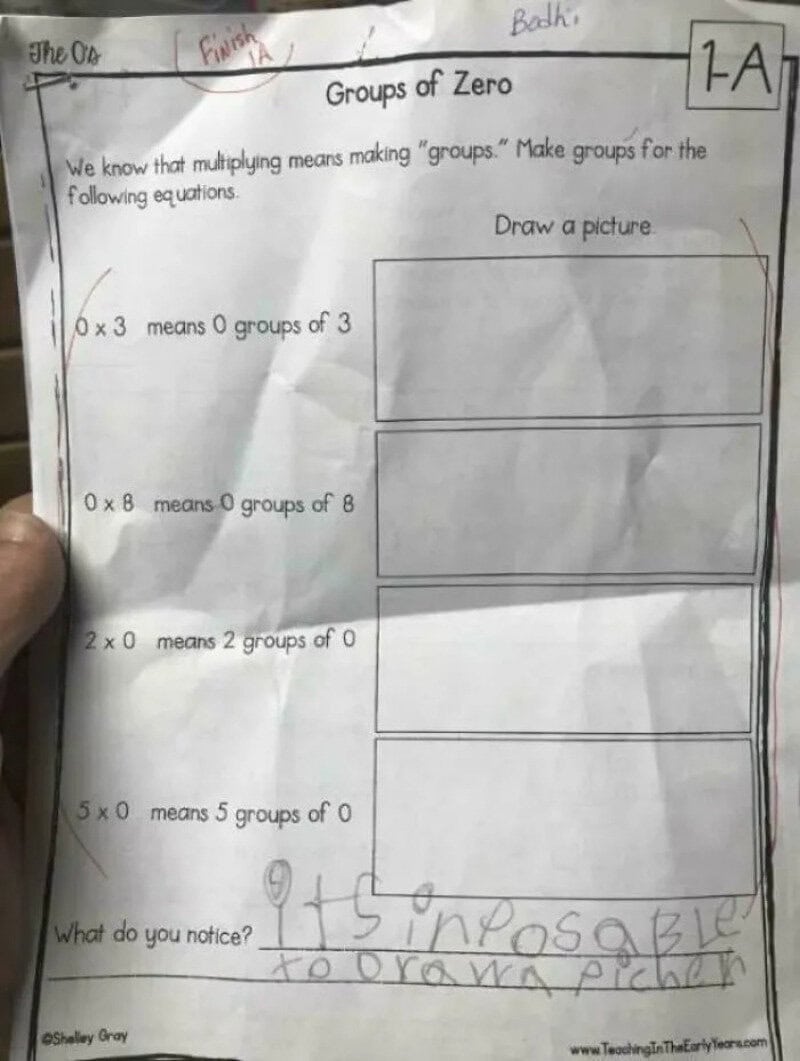 The 0's
Finish
1A
Bodhi
1-A
Groups of Zero
We know that multiplying means making "groups." Make groups for the
following equations.
Draw a picture.
0 x 3 means 0 groups of 3
0 x 8 means 0 groups of 8
2 x 0 means 2 groups of 0
5 x 0 means 5 groups of 0
What do you notice? Its inposable
to Drawa picher
©Shelley Gray
www.TeachingInTheEarlyYears.com